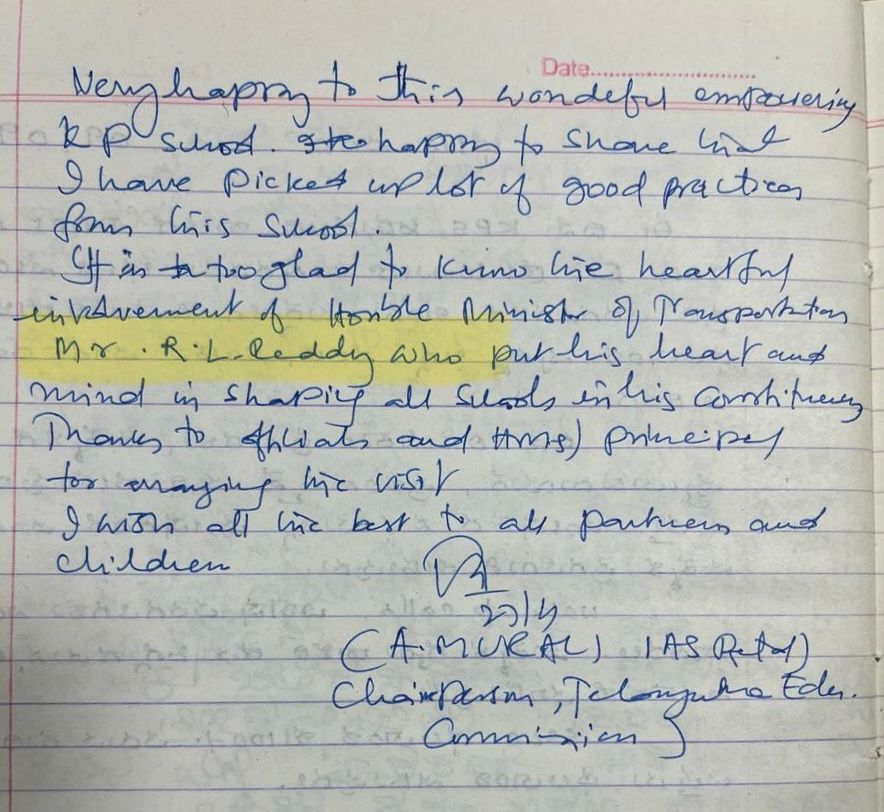 Date..............................
Very happy to this wondeful empowering
KP School. happy to share that
I have picked up lot of good practices
from this School.
It is too glad to know the heartful
involvement of Honble Minister of Transportation
Mr. R.L. Reddy who put his heart and
mind in shaping all Schools in his Constituency
Thanks to officials and HMs) principal
for arranging the visit
I wish all the best to all partners and
children
(A. MURALI IAS Retd)
Chairperson, Telangana Edn.
Commission